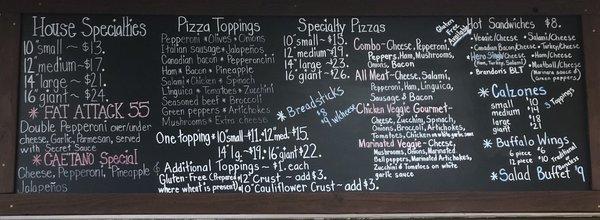 House Specialties
10" small ~ $13.
12" medium ~ $17.
14" large ~ $21.
16" giant ~ $24.
* FAT ATTACK 55
Double Pepperoni over/under
cheese, Garlic, Parmesan, served
with Secret Sauce
* CAETANO Special
Cheese, Pepperoni, Pineapple
Jalapeños
Pizza Toppings
Pepperoni * Olives * Onions
Italian sausage * Jalapeños
Canadian bacon * Pepperoncini
Ham * Bacon * Pineapple
Salami * Chicken * Spinach
Linguica * Tomatoes * Zucchini
Seasoned beef * Broccoli
Green peppers * Artichokes
Mushrooms * Extra cheese
One topping * 10" small ~ 11. * 12" med * 15.
14" lg. ~ 19. * 16" giant * 22.
Additional Toppings ~ $1. each
Gluten-Free (Prepared where wheat is present) * 12" Crust ~ add $3.
10" Cauliflower Crust ~ add $3.
* Breadsticks
$8
Specialty Pizzas
10" small ~ $15.
12" medium ~ $19.
14" large ~ $23.
16" giant ~ $26.
Combo ~ Cheese, Pepperoni,
Peppers, Ham, Mushrooms,
Onions, Bacon
All Meat ~ Cheese, Salami,
Pepperoni, Ham, Linguica,
Sausage & Bacon
Chicken Veggie Gourmet ~
Cheese, Zucchini, Spinach,
Onions, Broccoli, Artichokes,
Tomatoes, Chicken
Marinated Veggie ~ Cheese,
Mushrooms, Onions, Marinated
Bell peppers, Marinated Artichokes,
Zucchini & Tomatoes on white
garlic sauce
Gluten
Free
Available
Hot Sandwiches $8.
* Veggie/Cheese * Salami/Cheese
* Canadian Bacon/Cheese * Turkey/Cheese
Hero Single/Cheese
(Ham, Turkey, Salami)
* Ham/Cheese
* Meatball/Cheese
(Marinara sauce &
Green peppers)
* Brandon's BLT
* Calzones
small $10
medium $14
large $18
giant $21
3 Toppings
* Buffalo Wings
6 piece $6
12 piece $10
Traditional
Boneless
* Salad Buffet $9